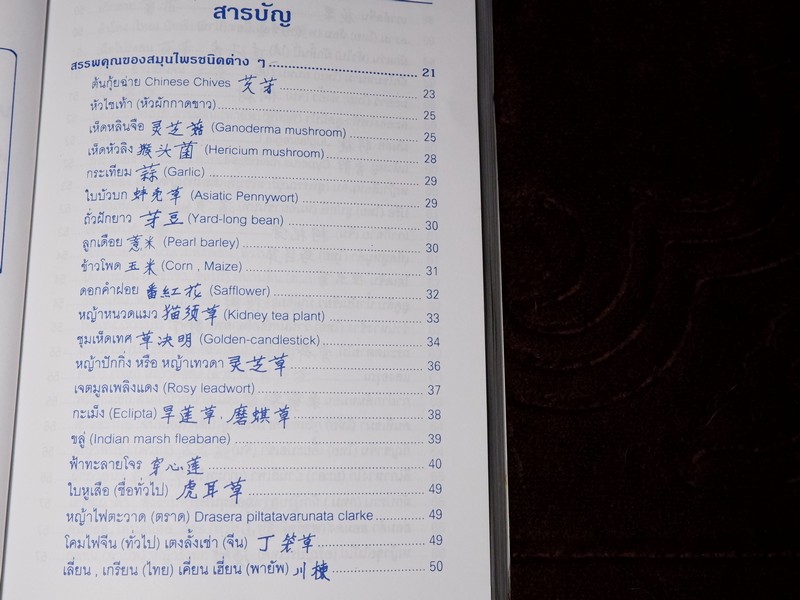 สารบัญ
สรรพคุณของสมุนไพรชนิดต่าง ๆ 21
ต้นกุ้ยฉ่าย Chinese Chives 芡芽 23
หัวไชเท้า (หัวผักกาดขาว) 25
เห็ดหลินจือ 灵芝菇 (Ganoderma mushroom) 25
เห็ดหัวลิง 猴头菌 (Hericium mushroom) 28
กระเทียม 蒜 (Garlic) 29
ใบบัวบก (Asiatic Pennywort) 29
ถั่วฝักยาว 芽豆 (Yard-long bean) 30
ลูกเดือย 薏米 (Pearl barley) 30
ข้าวโพด 玉米 (Corn , Maize) 31
ดอกคำฝอย 番紅花 (Safflower) 32
หญ้าหนวดแมว 猫须草 (Kidney tea plant) 33
ชุมเห็ดเทศ 草决明 (Golden-candlestick) 34
หญ้าปักกิ่ง หรือ หญ้าเทวดา 灵芝草 36
เจตมูลเพลิงแดง (Rosy leadwort) 37
กะเม็ง (Eclipta) 旱莲草 , 磨蜞草 38
ขลู่ (Indian marsh fleabane) 39
ฟ้าทะลายโจร 穿心莲 40
ใบหูเสือ (ชื่อทั่วไป) 虎耳草 49
หญ้าไฟตะวาด (ตราด) Drasera piltatavarunata clarke 49
โคมไฟจีน (ทั่วไป) เตงลั้งเช่า (จีน) 49
เลี่ยน , เกรียน (ไทย) เคี่ยน เฮี่ยน (พายัพ) 川楝 50